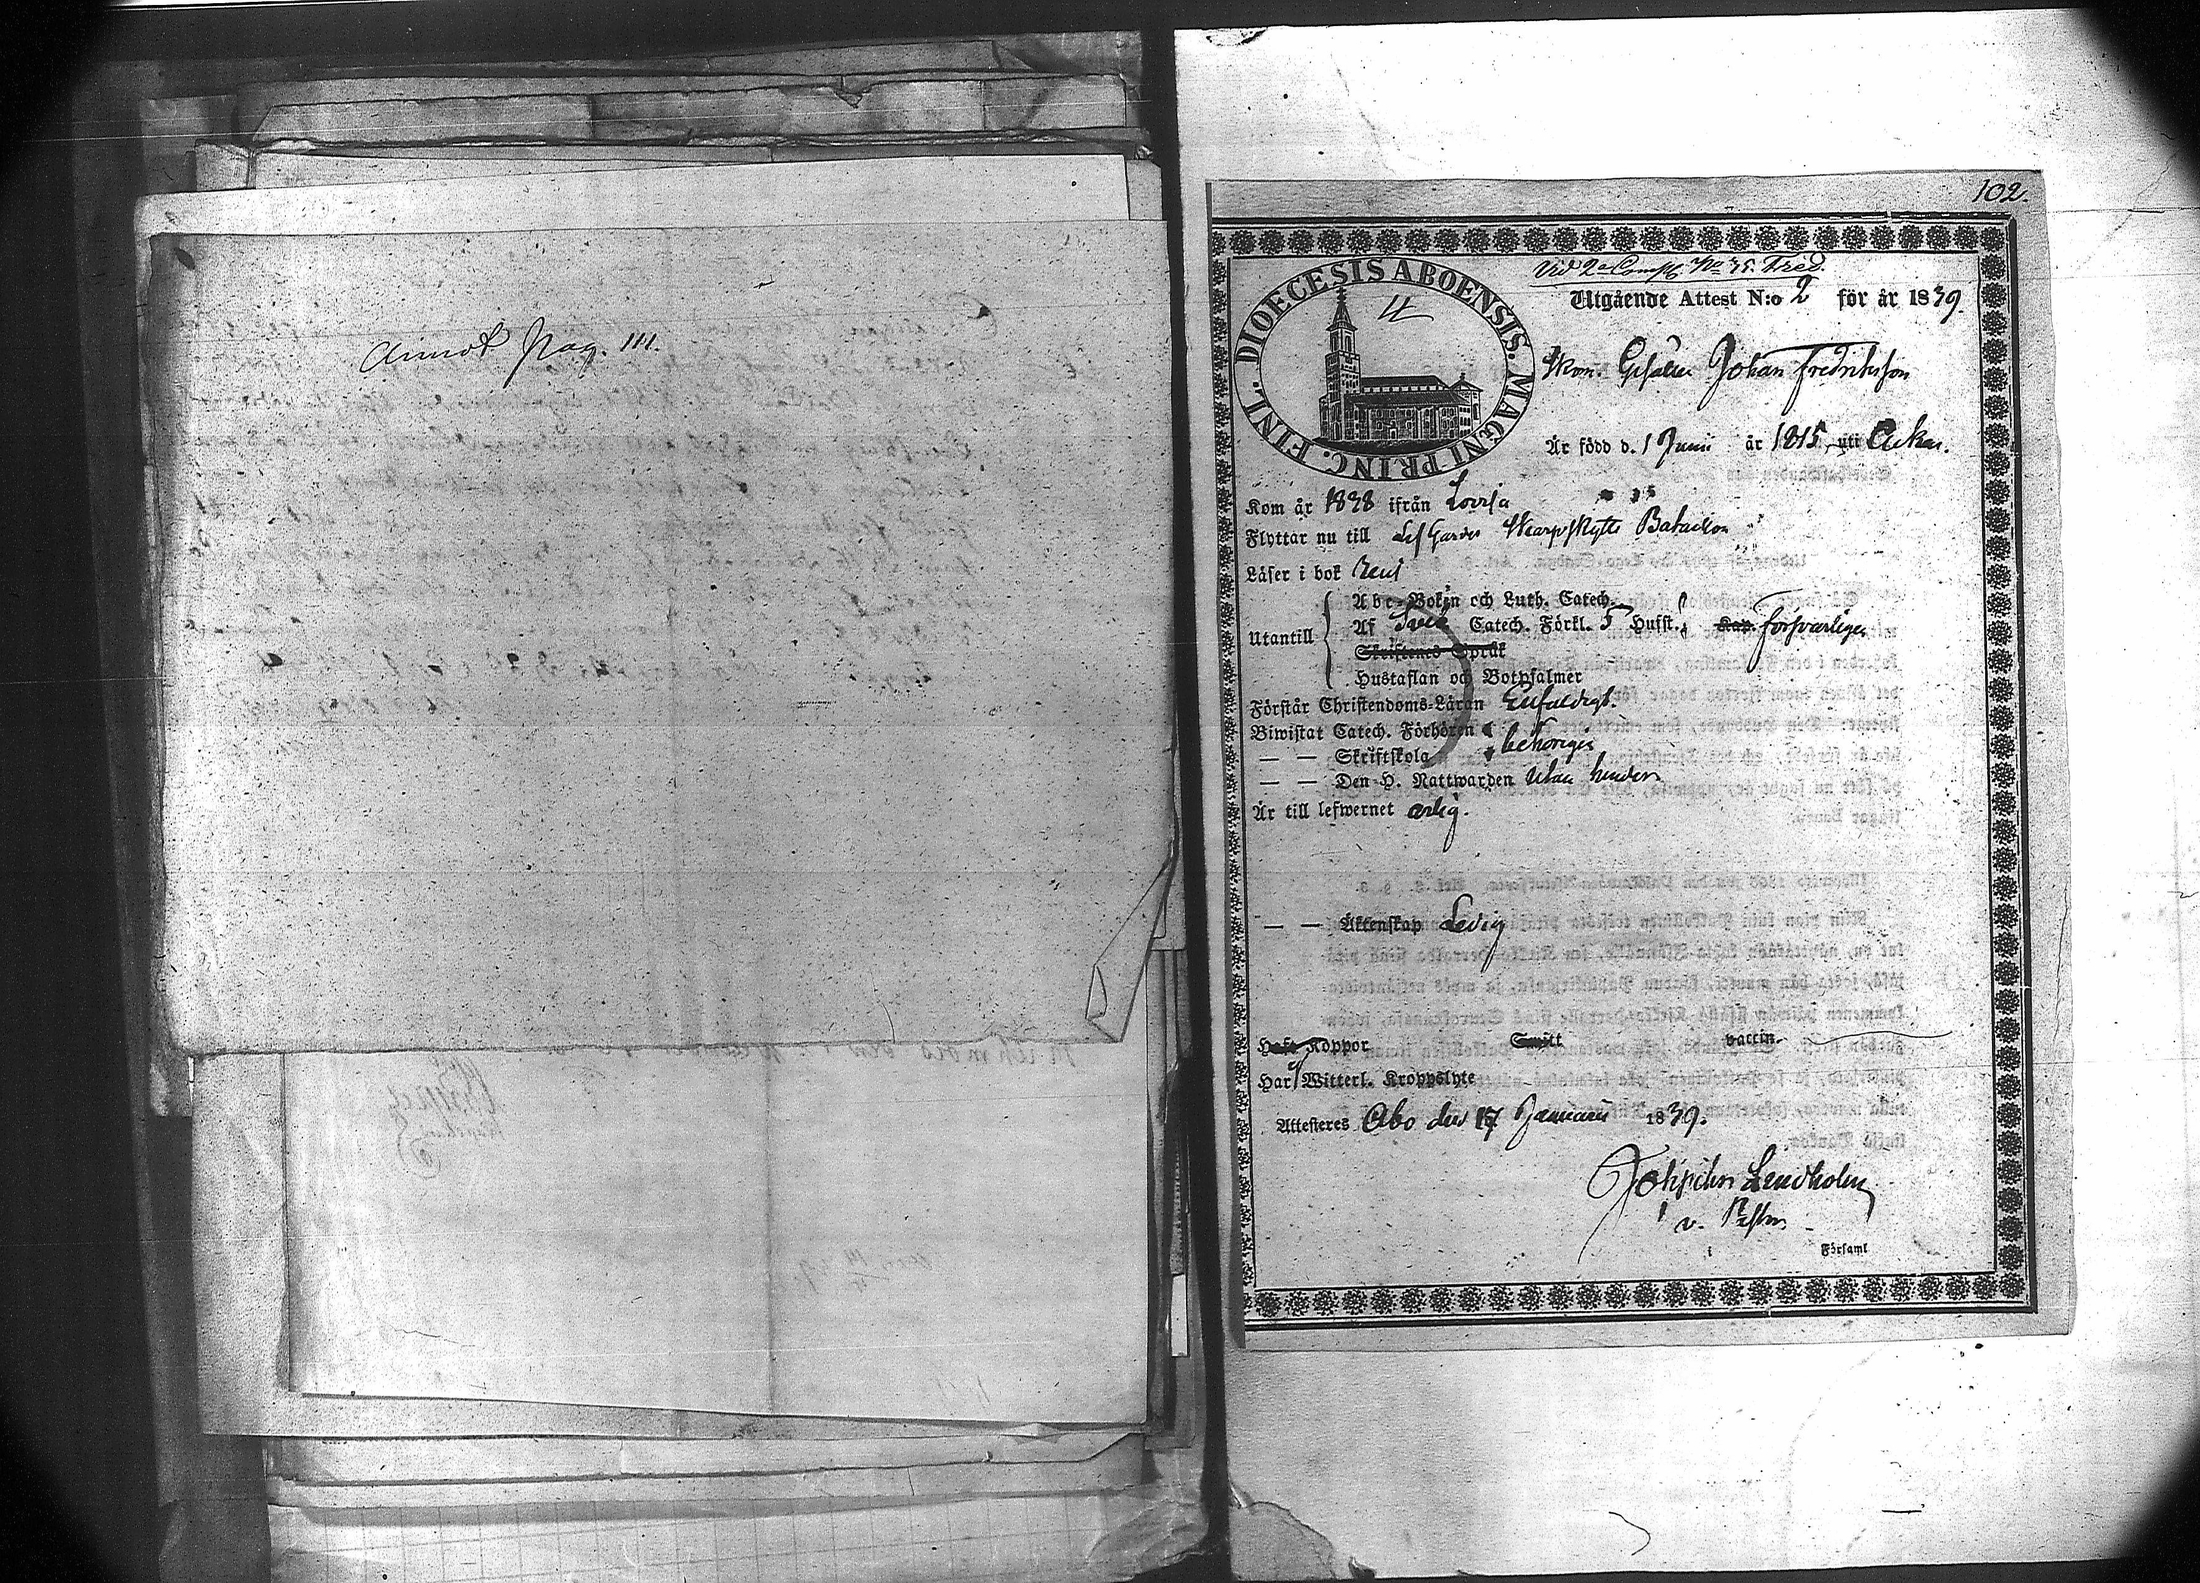 Annot Pag. 111.
102.
Vid 2a Comp. No 35. Fred.
DIOECESIS ABOENSIS. MAGNI PRINC. FINL.
Utgående Attest N:o 2 för år 1839.
Skom. Gesällen Johan Fredriksson
Är född d. 1 Juni år 1815, uti
Kom år 1838 ifrån Lovisa
Flyttar nu till Lif Gardes Skarpskytte Bataillon
Läser i bok Rent
Utantill
Abc-Boken och Luth. Catech.
Af Sveb Catech. Förkl. 5 Hufst. försvarliga
Skriftenes Språk
Hustaflan och Botpsalmer
Förstår Christendoms-Läran Enfaldigt.
Biwistat Catech. Förhören
— — Skriftskola behörigen
— — Den H. Nattwarden utan hinder
Är till lefwernet ärlig.
— — Äktenskap Ledig
Haft Koppor Smitt vaccin.
Har ej Witterl. Kroppslyte
Attesteres Åbo den 17 Januarii 1839.
Lindholm
v. Pastor
i Församl